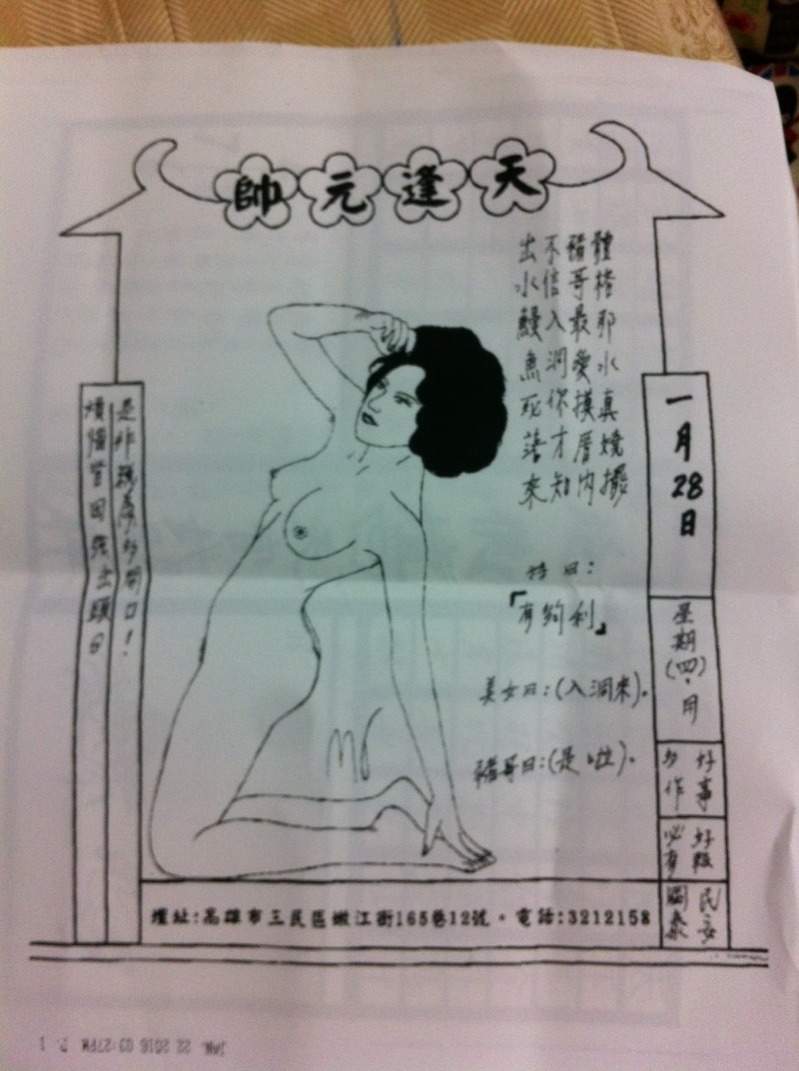 天逢元帥
體格那水真嬈擺
豬哥最愛摸厝內
不信入洞你才知
出水鰻魚死落來
一月28日
星期(四)、用
好事
多作
好報
必有
民安
國泰
「有夠利」
美女曰:(入洞來)。
豬哥曰:(是啦)。
是非我為多開口!
煩惱皆因強出頭
壇址:高雄市三民區嫩江街165巷12號。電話:3212158
JAN. 22 2016 03:27PM P. 1